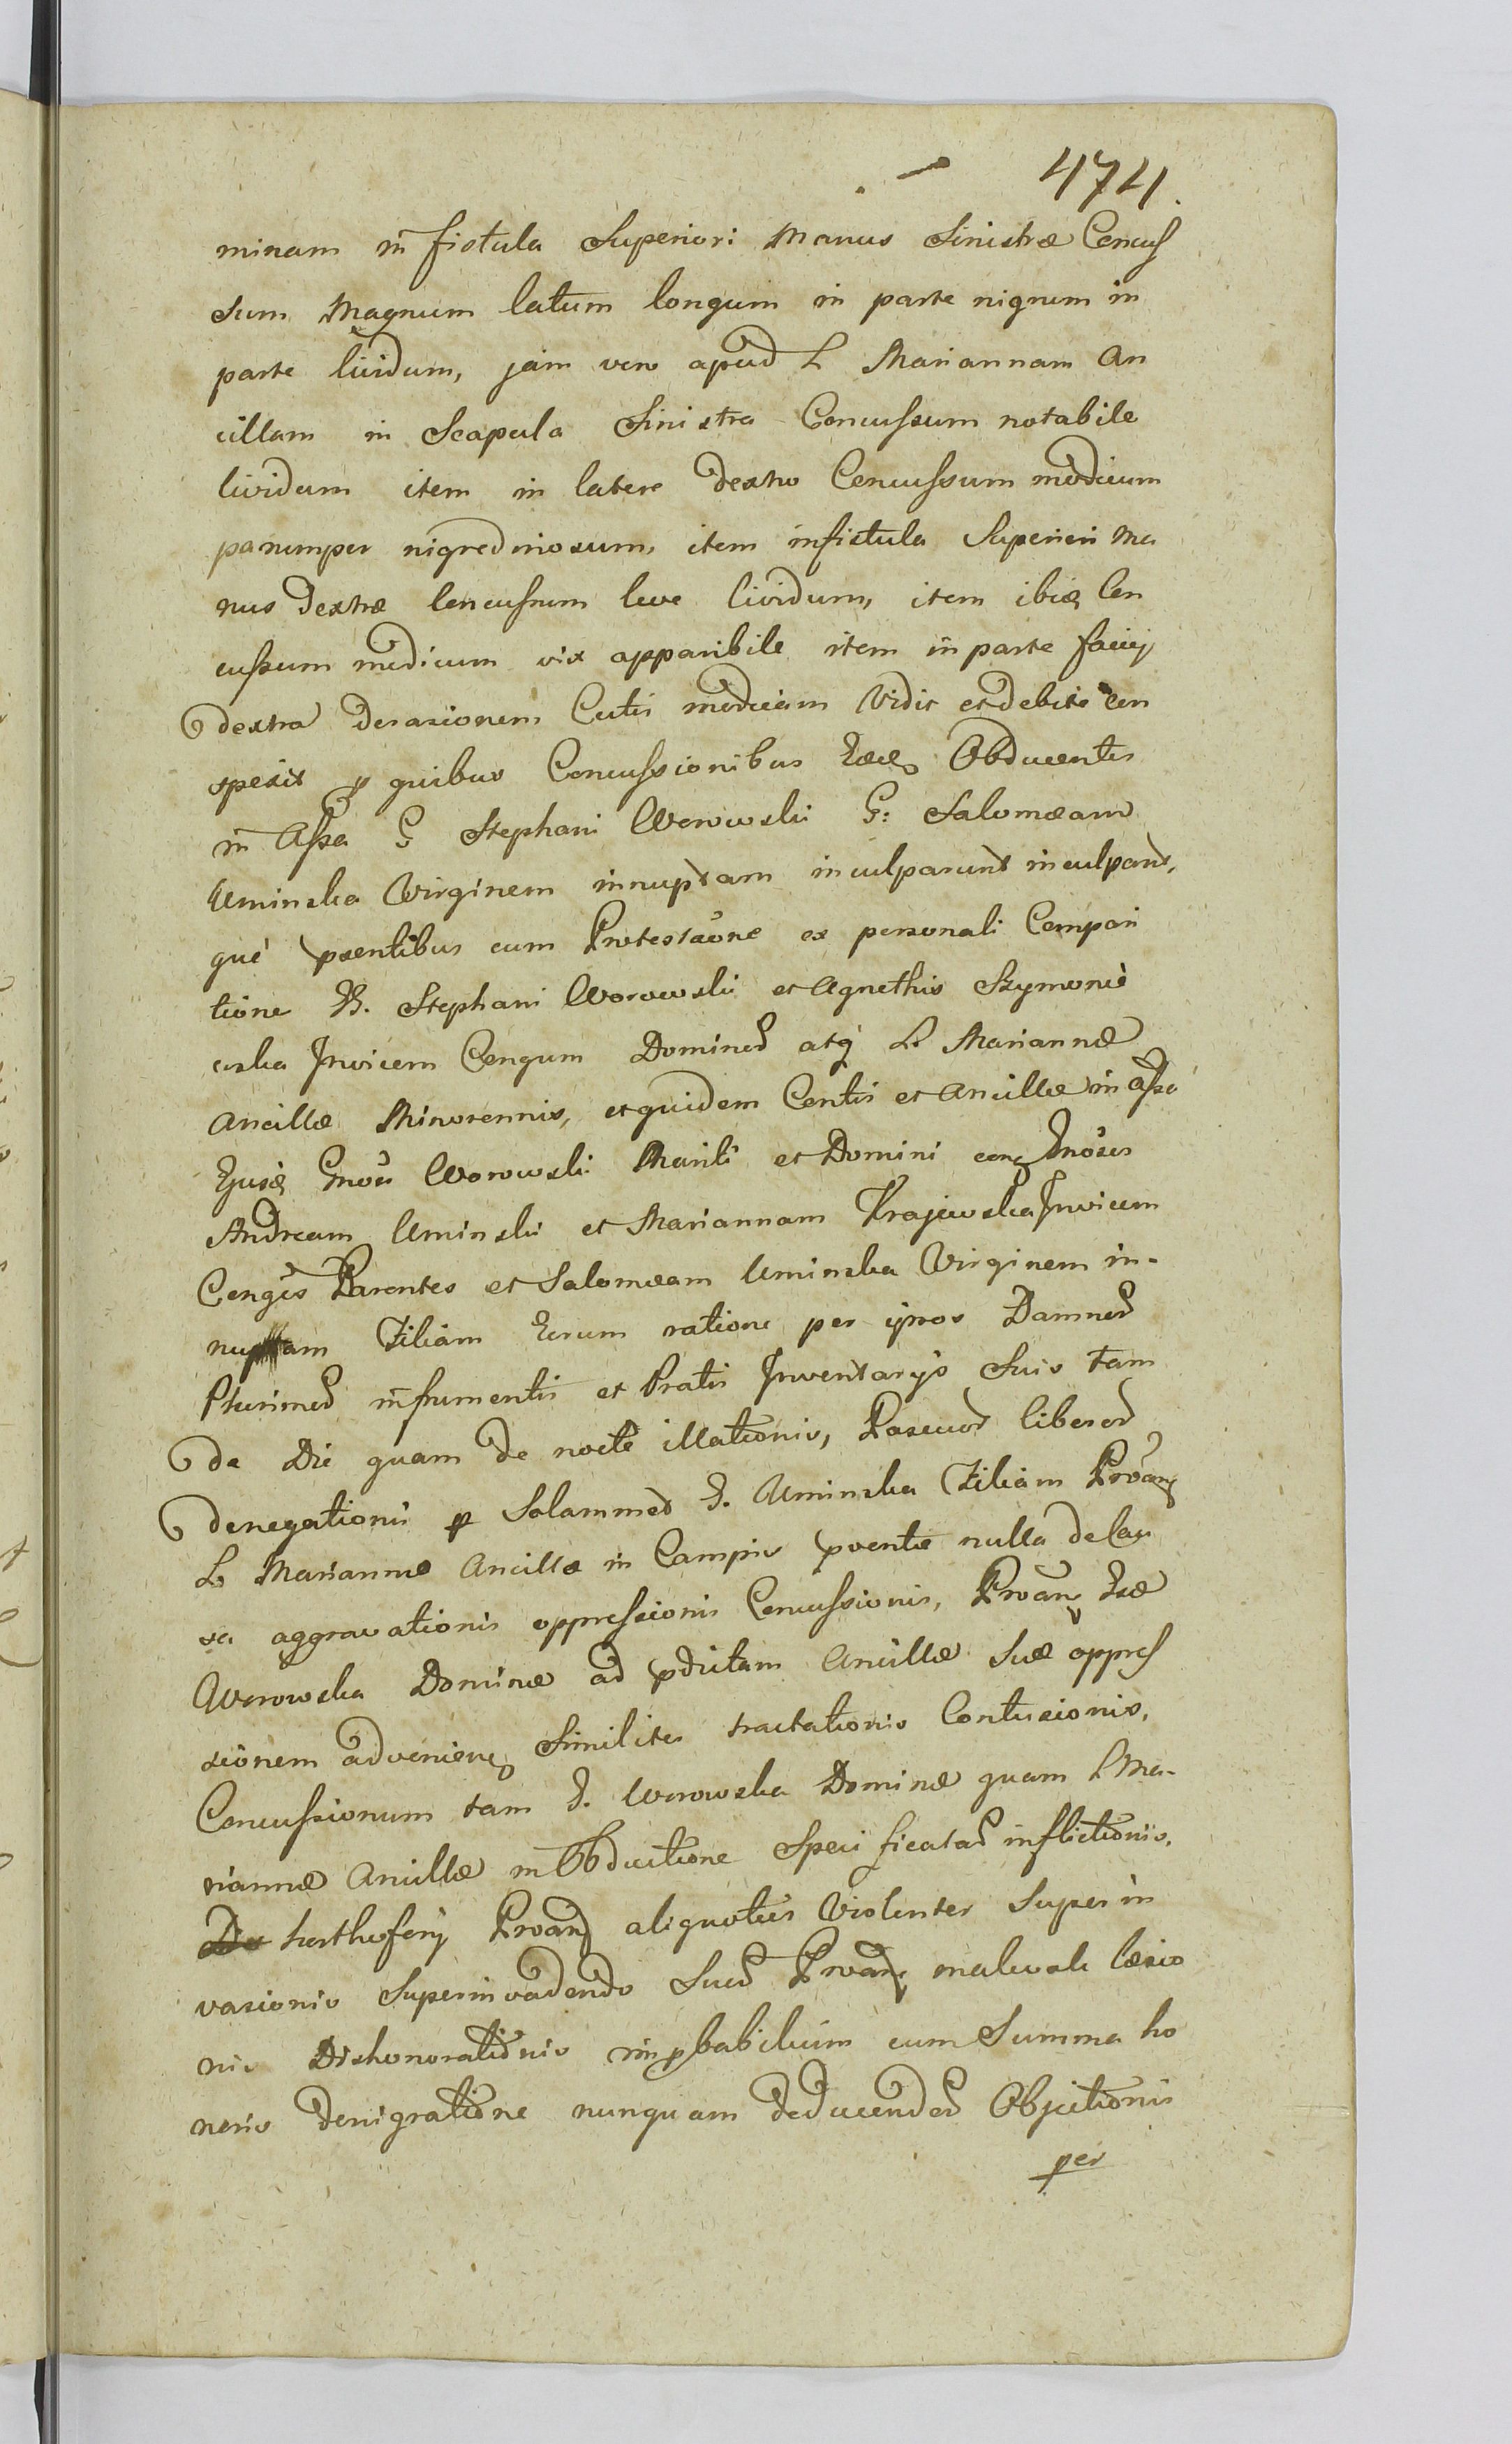 474.
minam in fistula Superiori Manus Sinistræ Concus
sum Magnum latum longum in parte nigrum in
parte lividum, jam vero apud L Mariannam An
cillam in Scapula Sinistra Concussum notabile
lividum item in latere dextro Concussum modicum
parumper nigredinosum, item in fistula Superiori Ma
nus dextræ Concussum leve lividum, item ibiq Con
cussum modicum vix apparibile item in parte faciei
dextra derasionem Cutis modicam Vidit et debite con
spexit quibus Concussionibus Obducentes
in Assa G Stephani Worowski G: Salomæam
Uminska Virginem innuptam inculparunt inculpant,
que pxentibus cum Protestaone ex personali Compari
tione G. Stephani Worowski et Agnethis Szymonie
wska Invicem Congum Dominod atq L. Mariannæ
Ancillæ Minorennis, et quidem Contis et Ancillæ in assa
Ejusq Gnosi Worowski Mariti et Domini conq Gnosos
Andream Uminski et Mariannam Krajewska Invicem
Conges Parentes et Salomæam Uminska Virginem in-
nuptam Filiam Eorum ratione per ipsos Damnod
Plurimod in frumentis et Pratis Inventarys Suis tam
de Die quam de nocte illationis, Pascuod liberod
denegationis p Solammet G. Uminska Filiam Proang
L. Mariannæ Ancillæ in Campis pventæ nulla de Cau
sa aggravationis oppressionis Concussionis, Proang Gsæ
Worowska Dominæ ad pdictam Ancillæ Suæ oppres
sionem adveniene Similiter tractationis Contusionis,
Concussionum tam G. Worowska Dominæ quam L Ma-
riannæ Ancillæ in Obductione Specificatad inflictionis,
aliquoties Violenter Superin
vasionis Superinvadendo Suod Proang læsio
nis Dishonorationis impbabilium cum Summa ho
noris denigratione nunquam deducendod Objectionis
per